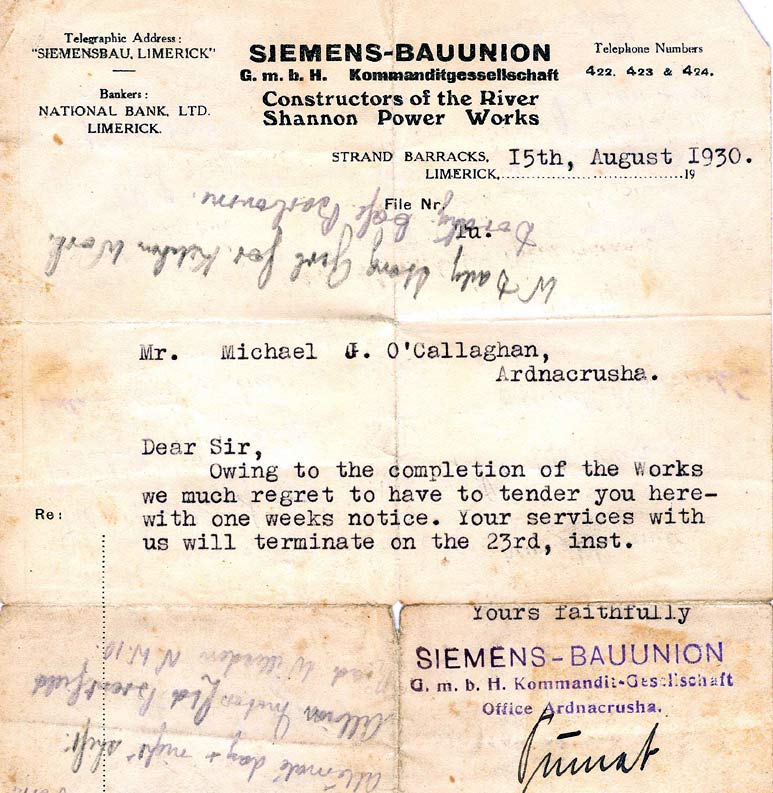 Telegraphic Address:
"SIEMENSBAU, LIMERICK"
Bankers:
NATIONAL BANK, LTD.
LIMERICK.
SIEMENS-BAUUNION
G. m. b. H. Kommanditgessellschaft
Constructors of the River
Shannon Power Works
Telephone Numbers
422, 423 & 424.
STRAND BARRACKS, 15th, August 1930.
LIMERICK, 19
File Nr.
To:
W Daily Strong Girl for Kitchen Work.
Dorothy Cafe
Mr. Michael J. O'Callaghan,
Ardnacrusha.
Dear Sir,
Owing to the completion of the Works
we much regret to have to tender you here-
Re:
with one weeks notice. Your services with
us will terminate on the 23rd, inst.
Yours faithfully
SIEMENS-BAUUNION
G. m. b. H. Kommandit-Gesellschaft
Office Ardnacrusha.
alternate day & night shift.
Road Willesden N W 10